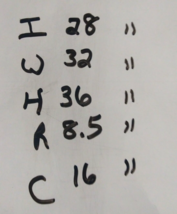 I 28 "
W 32 "
H 36 "
R 8.5 "
C 16 "